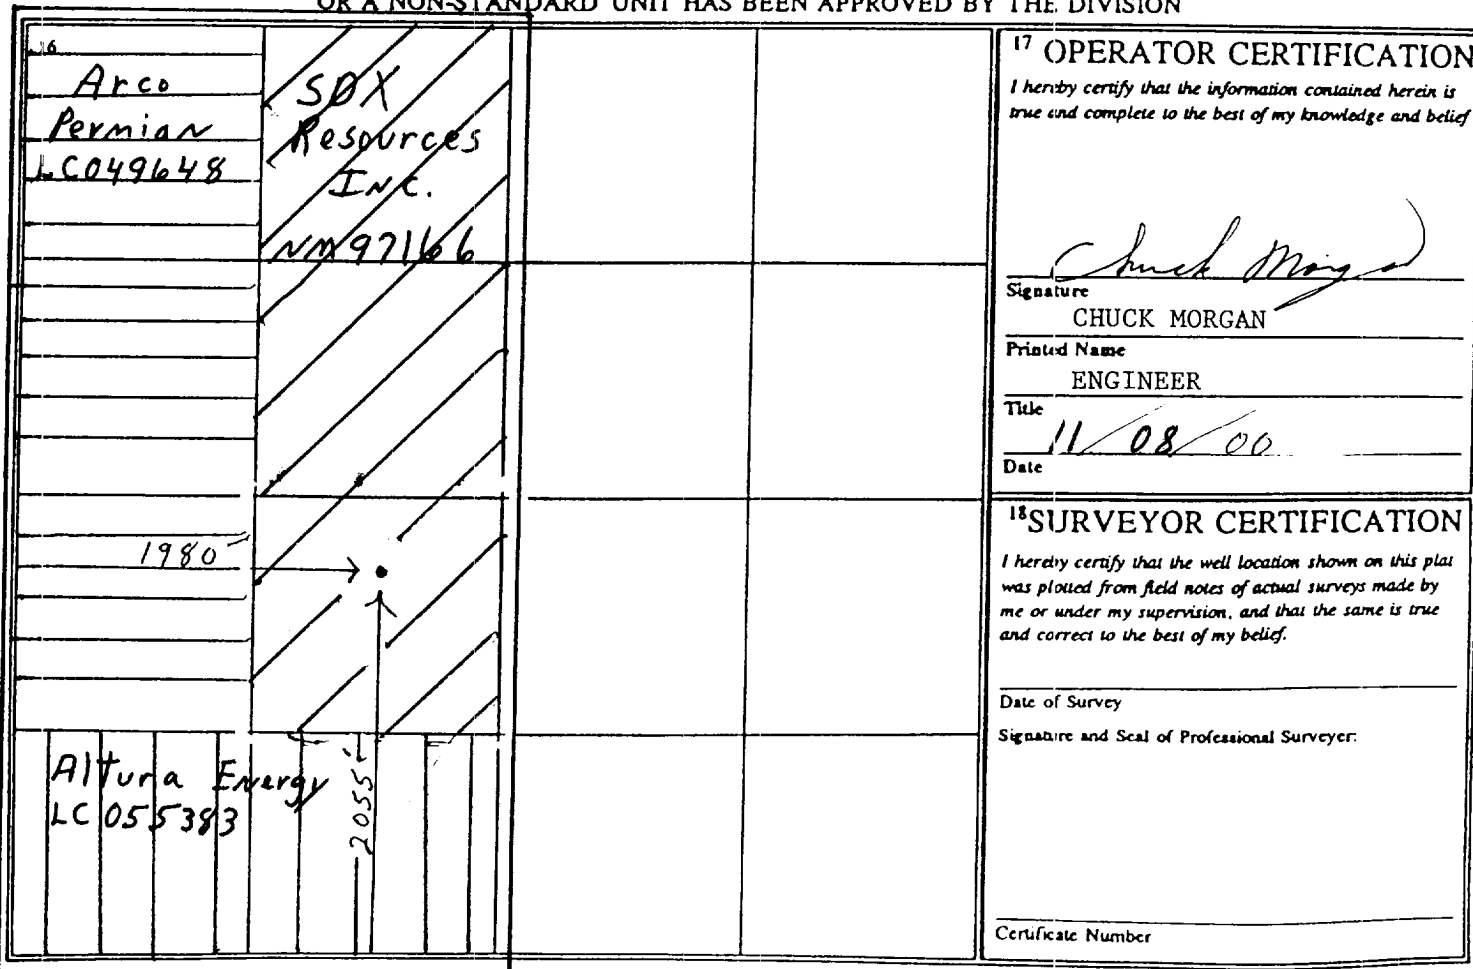 OR A NON-STANDARD UNIT HAS BEEN APPROVED BY THE DIVISION
16
Arco
Permian
LC049648
SDX
Resources
Inc.
NM97166
1980'
2055'
Altura Energy
LC 055383
17 OPERATOR CERTIFICATION
I hereby certify that the information contained herein is
true and complete to the best of my knowledge and belief
Chuck Morgan
Signature
CHUCK MORGAN
Printed Name
ENGINEER
Title
11/08/00
Date
18 SURVEYOR CERTIFICATION
I hereby certify that the well location shown on this plat
was plotted from field notes of actual surveys made by
me or under my supervision, and that the same is true
and correct to the best of my belief.
Date of Survey
Signature and Seal of Professional Surveyer:
Certificate Number